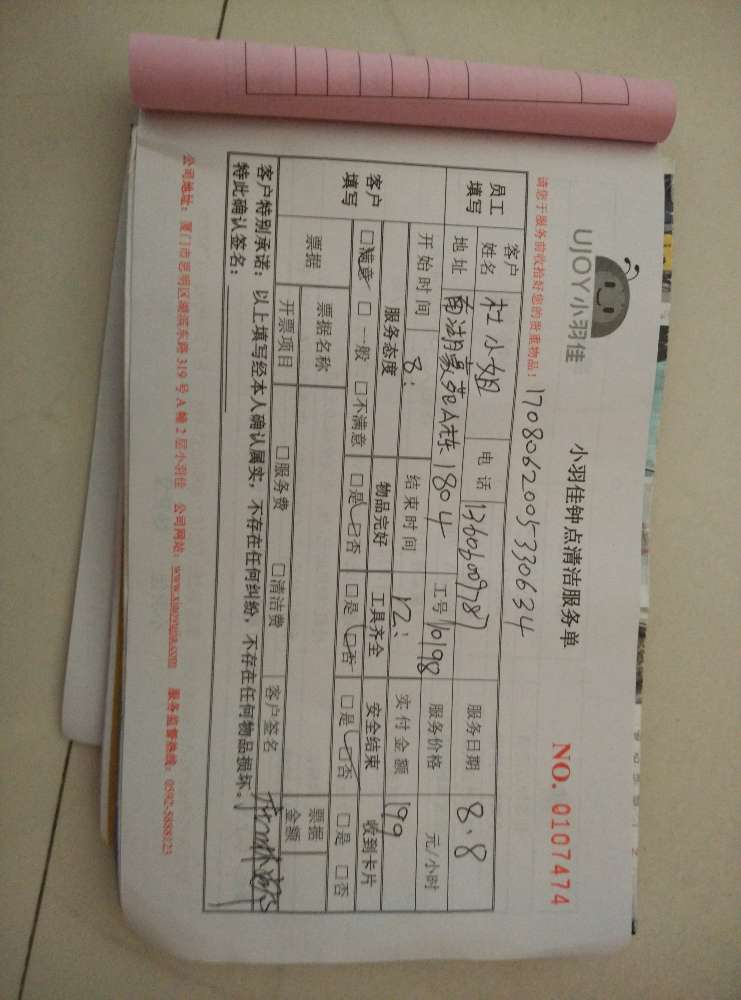 UJOY小羽佳
小羽佳钟点清洁服务单
NO. 0107474
请您于服务前收拾好您的贵重物品！
1708062005330634
员工填写
客户姓名 杜小姐 电话 13606009787 服务日期 8.8
地址 南湖豪苑A栋1804 工号 10198 服务价格 元/小时
开始时间 8: 结束时间 12: 实付金额 199
客户填写
服务态度 物品完好 工具齐全 安全结束 收到卡片
□满意 □一般 □不满意 □是 □否 □是 □否 □是 □否 □是 □否
票据 票据名称 票据金额
开票项目 □服务费 □清洁费 客户签名
客户特别承诺：以上填写经本人确认属实，不存在任何纠纷，不存在任何物品损坏。
特此确认签名：
公司地址：厦门市思明区湖滨东路319号A幢2层小羽佳 公司网站：www.xiaoyujia.com 服务监督热线：0592-5888123